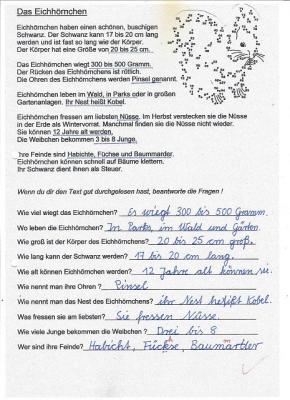 Das Eichhörnchen
Eichhörnchen haben einen schönen, buschigen
Schwanz. Der Schwanz kann 17 bis 20 cm lang
werden und ist fast so lang wie der Körper.
Der Körper hat eine Größe von 20 bis 25 cm.
Das Eichhörnchen wiegt 300 bis 500 Gramm.
Der Rücken des Eichhörnchens ist rötlich.
Die Ohren des Eichhörnchens werden Pinsel genannt.
Eichhörnchen leben im Wald, in Parks oder in großen
Gartenanlagen. Ihr Nest heißt Kobel.
Eichhörnchen fressen am liebsten Nüsse. Im Herbst verstecken sie die Nüsse
in der Erde als Wintervorrat. Manchmal finden sie die Nüsse nicht wieder.
Sie können 12 Jahre alt werden.
Die Weibchen bekommen 3 bis 8 Junge.
Ihre Feinde sind Habichte, Füchse und Baummarder.
Eichhörnchen können schnell auf Bäume klettern.
Ihr Schwanz dient ihnen als Steuer.
Wenn du dir den Text gut durchgelesen hast, beantworte die Fragen !
Wie viel wiegt das Eichhörnchen? Es wiegt 300 bis 500 Gramm.
Wo leben die Eichhörnchen? In Parks, im Wald und Gärten.
Wie groß ist der Körper des Eichhörnchens? 20 bis 25 cm groß.
Wie lang kann der Schwanz werden? 17 bis 20 cm lang.
Wie alt können Eichhörnchen werden? 12 Jahre alt können sie.
Wie nennt man ihre Ohren ? Pinsel
Wie nennt man das Nest des Eichhörnchens? ihr Nest heißt Kobel.
Was fressen sie am liebsten? Sie fressen Nüsse.
Wie viele Junge bekommen die Weibchen ? Drei bis 8
Wer sind ihre Feinde? Habicht, Baummartler